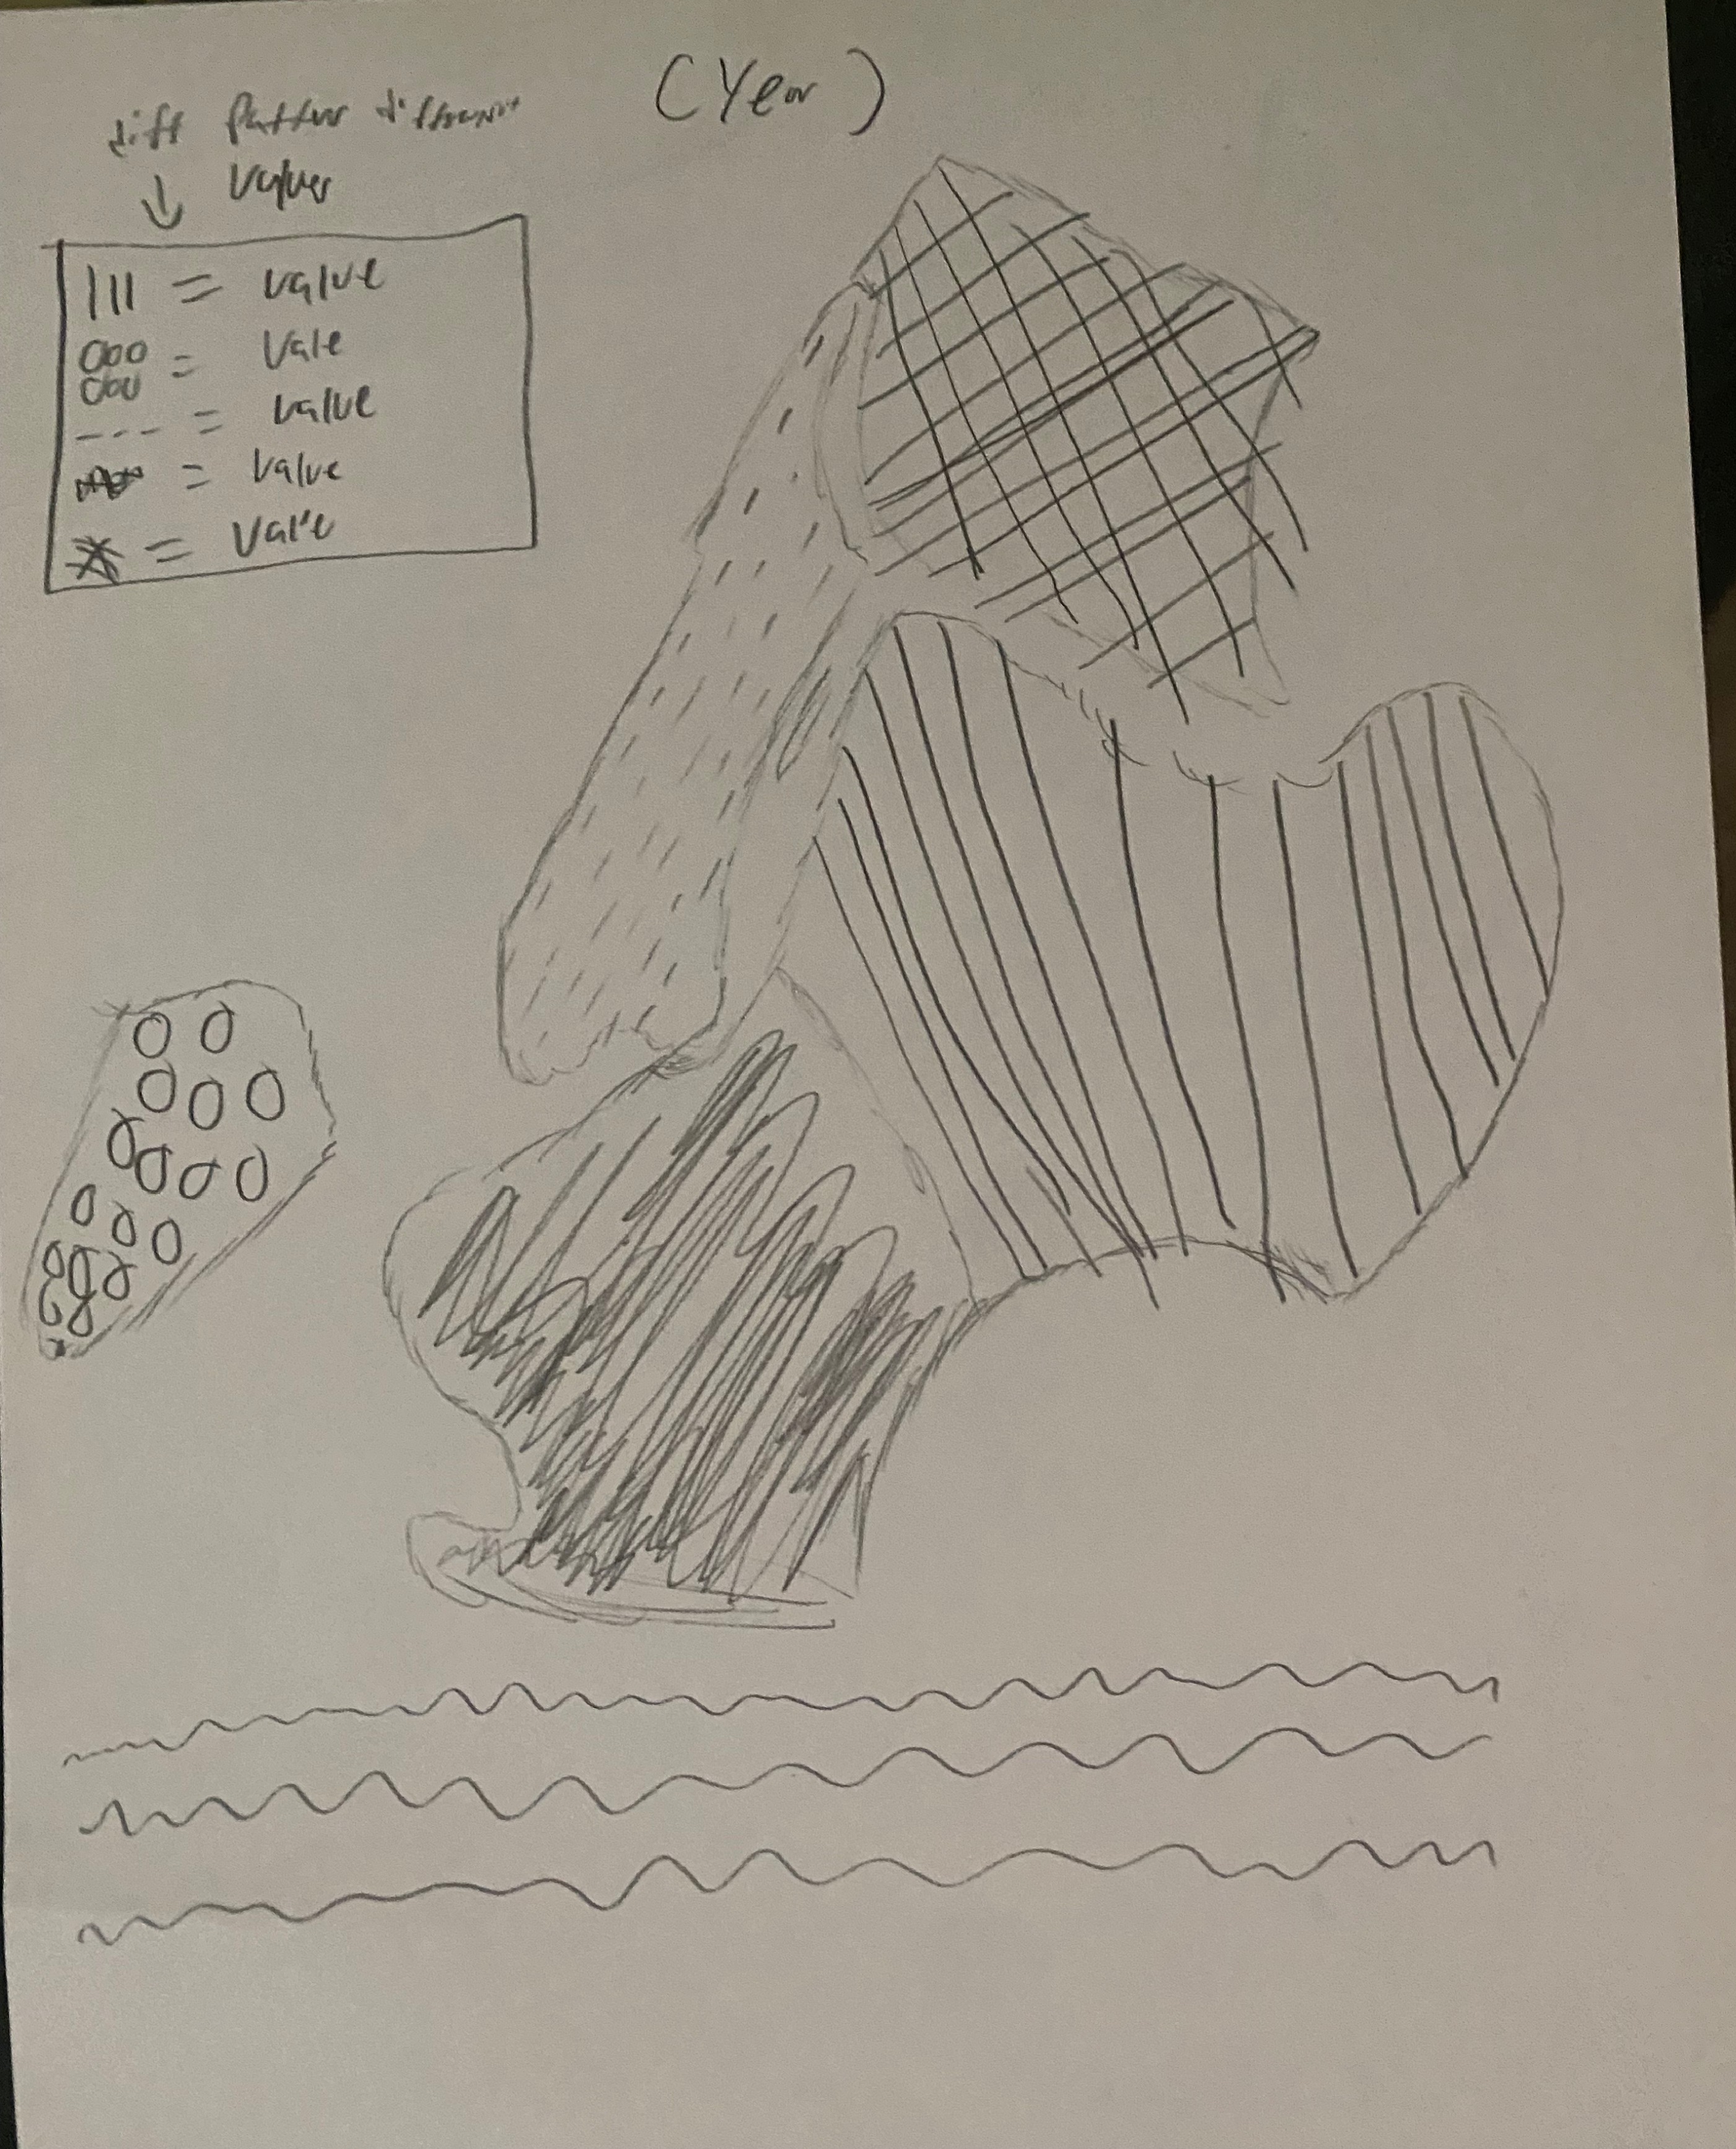 (Year)
diff Patter different
values
||| = value
000
000 = Vale
--- = value
= value
= Value